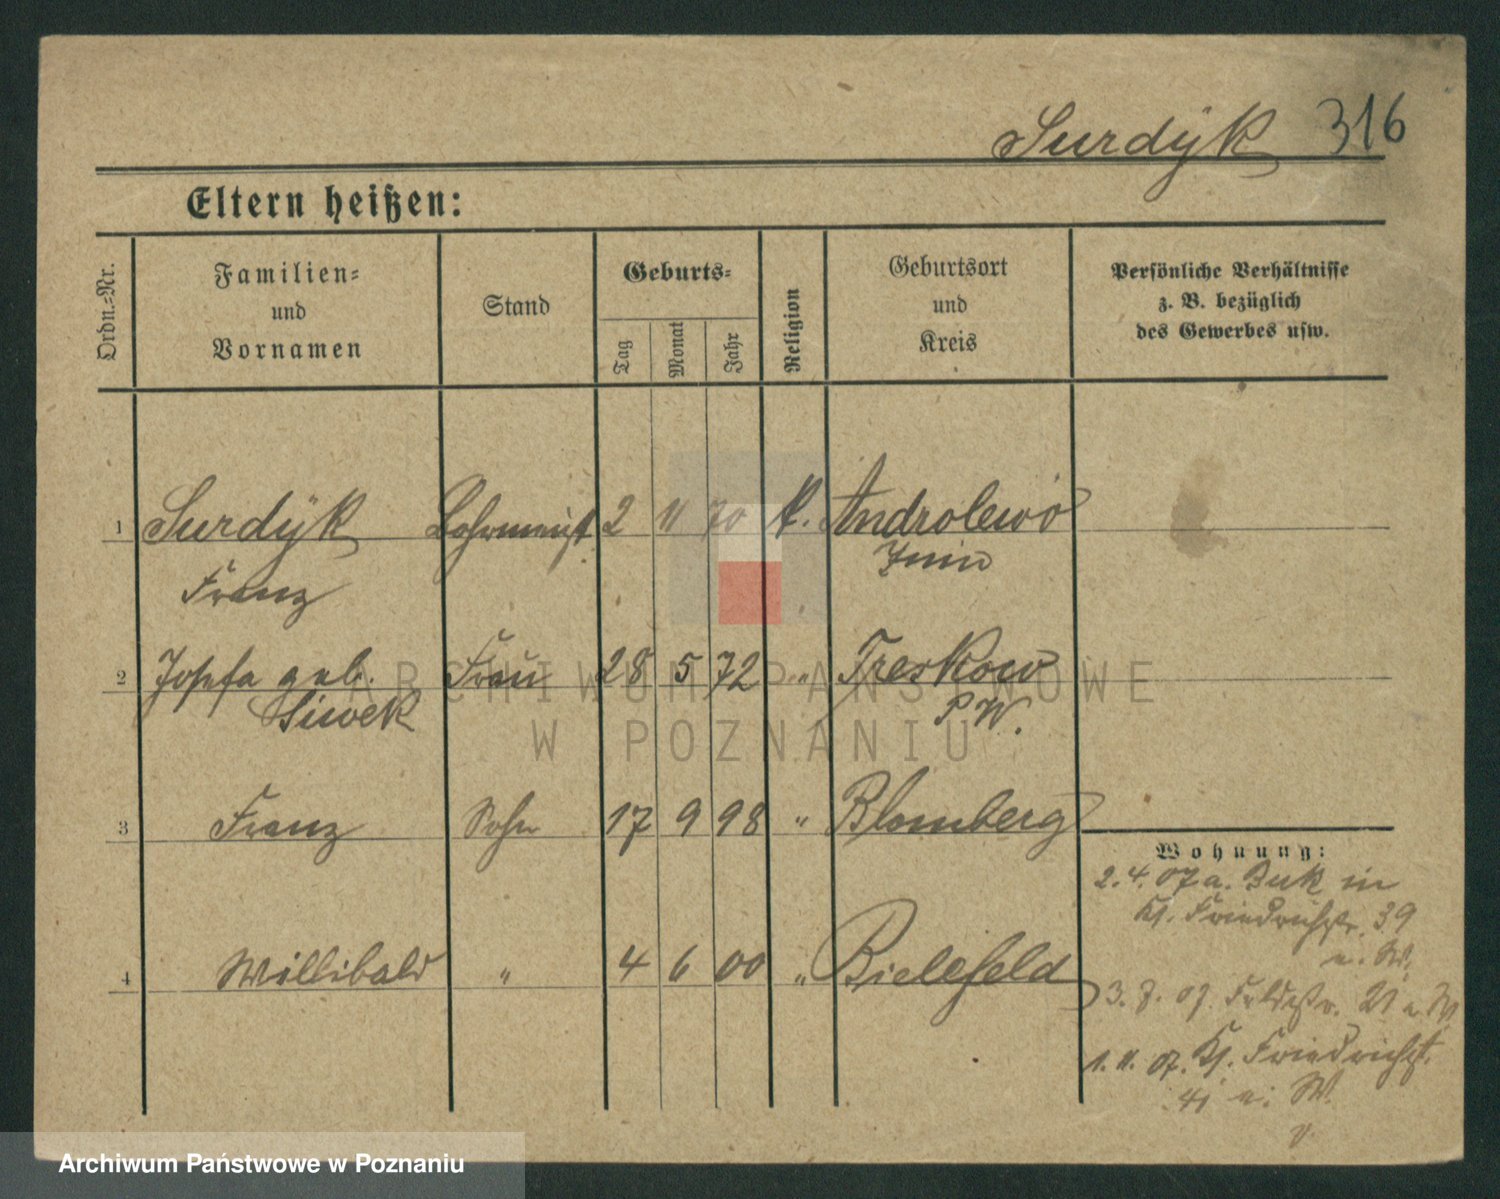 Surdÿk 316
Eltern heißen:
Ordn.-Nr.
Familien-
und
Vornamen
Stand
Geburts-
Tag
Monat
Jahr
Religion
Geburtsort
und
Kreis
Persönliche Verhältnisse
z. B. bezüglich
des Gewerbes usw.
1 Surdÿk 2 11 70 k. Androlewo
Franz Znin
2 Josefa geb. Frau 28 5 72 " Treskow
Siwek P. W.
3 Franz Sohn 17 9 98 " Blomberg
Wohnung:
2. 4. 07 a. Buk in
Kl. Friedrichstr. 39
n. W.
4 Willibald " 4 6 00 " Bielefeld
3. 7. 07. Feldstr. 21 n. W.
1. 11. 07. Kl. Friedrichst.
41 n. W.
ARCHIWUM PAŃSTWOWE
W POZNANIU
Archiwum Państwowe w Poznaniu